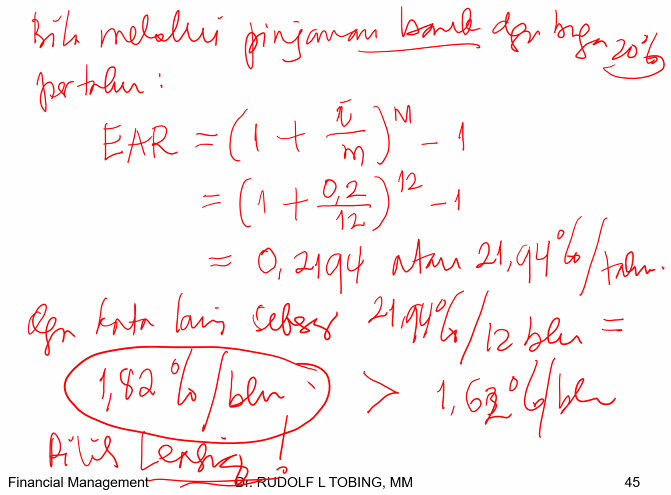 Bila melalui pinjaman bank dgn bunga 20%
per tahun :
EAR = (1 + i/m)^m - 1
= (1 + 0,2/12)^12 - 1
= 0,2194 atau 21,94%/tahun.
dgn kata lain sebesar 21,94%/12 bln =
1,82%/bln > 1,63%/bln
Pilih Leasing!
Financial Management Dr. RUDOLF L TOBING, MM 45